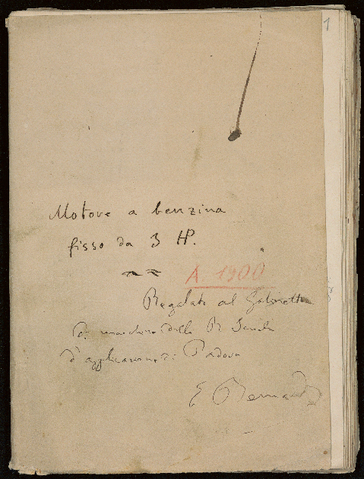 1
Motore a benzina
fisso da 3 HP.
A 1900
Regalato al Gabinetto
di macchine della R. Scuola
d'applicazione di Padova
E Bernardi